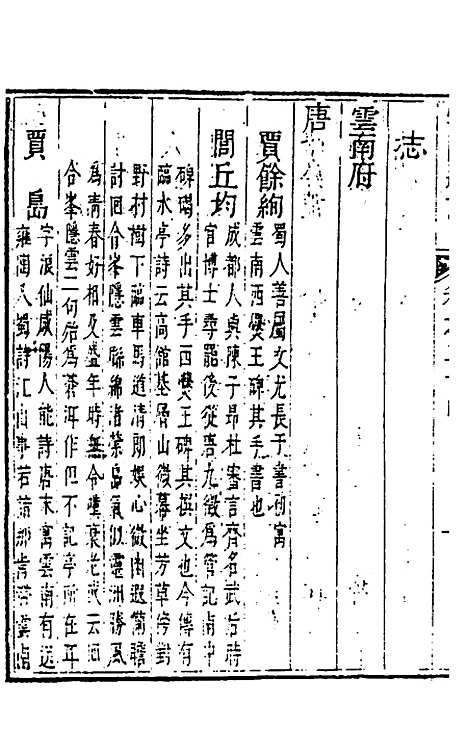 志
雲南府
唐
賈餘絢蜀人善屬文尤長于書初寓
雲南西爨王碑其手書也
閭丘均成都人與陳子昂杜審言齊名武后時
官博士尋罷後從唐九徵為管記南中
碑碣多出其手西爨王碑其撰文也今傳有
臨水亭詩云高館基曾山微幕坐芳草傍對
野村樹下臨車馬道清朗娛心微幽遐簡瞻
討回合峯隱雲聯綿渚縈島氣似靈洲勝風
為青春好相及盛年時無令歎衰老或云回
合峯隱雲二句殆為苍洱作但不記亭所在耳
賈島字浪仙咸陽人能詩唐末寓雲南有送
雍淘入蜀詩江山事若諳那肯滞雲南